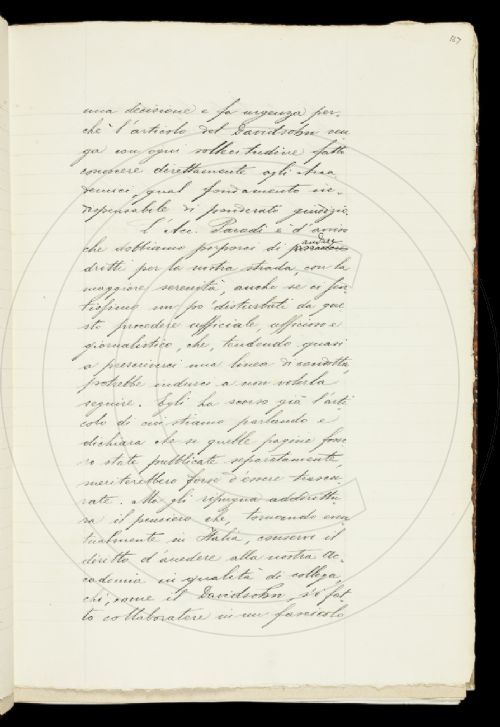 157
una decisione e fa urgenza per-
chè l'articolo del Davidsohn ven
ga con ogni sollecitudine fatto
conoscere direttamente agli Acca
demici, qual fondamento in-
dispensabile di ponderato giudizio.
L'Acc. Parodi è d'avviso
che dobbiamo proporci di andar
dritti per la nostra strada, con la
maggiore serenità, anche se ci sen
tissimo un po' disturbati da que
sto procedere ufficiale, ufficioso e
giornalistico, che, tendendo quasi
a prescriverci una linea di condotta,
potrebbe indurci a non volerla
seguire. Egli ha scorso già l'arti
colo di cui stiamo parlando e
dichiara che se quelle pagine fosse
ro state pubblicate separatamente,
meriterebbero forse d'essere trascu
rate. Ma gli repugna addirittu
ra il pensiero che, tornando even
tualmente in Italia, conservi il
diritto d'accedere alla nostra Ac-
cademia in qualità di collega,
chi, come il Davidsohn, s'è fat-
to collaboratore in un fascicolo